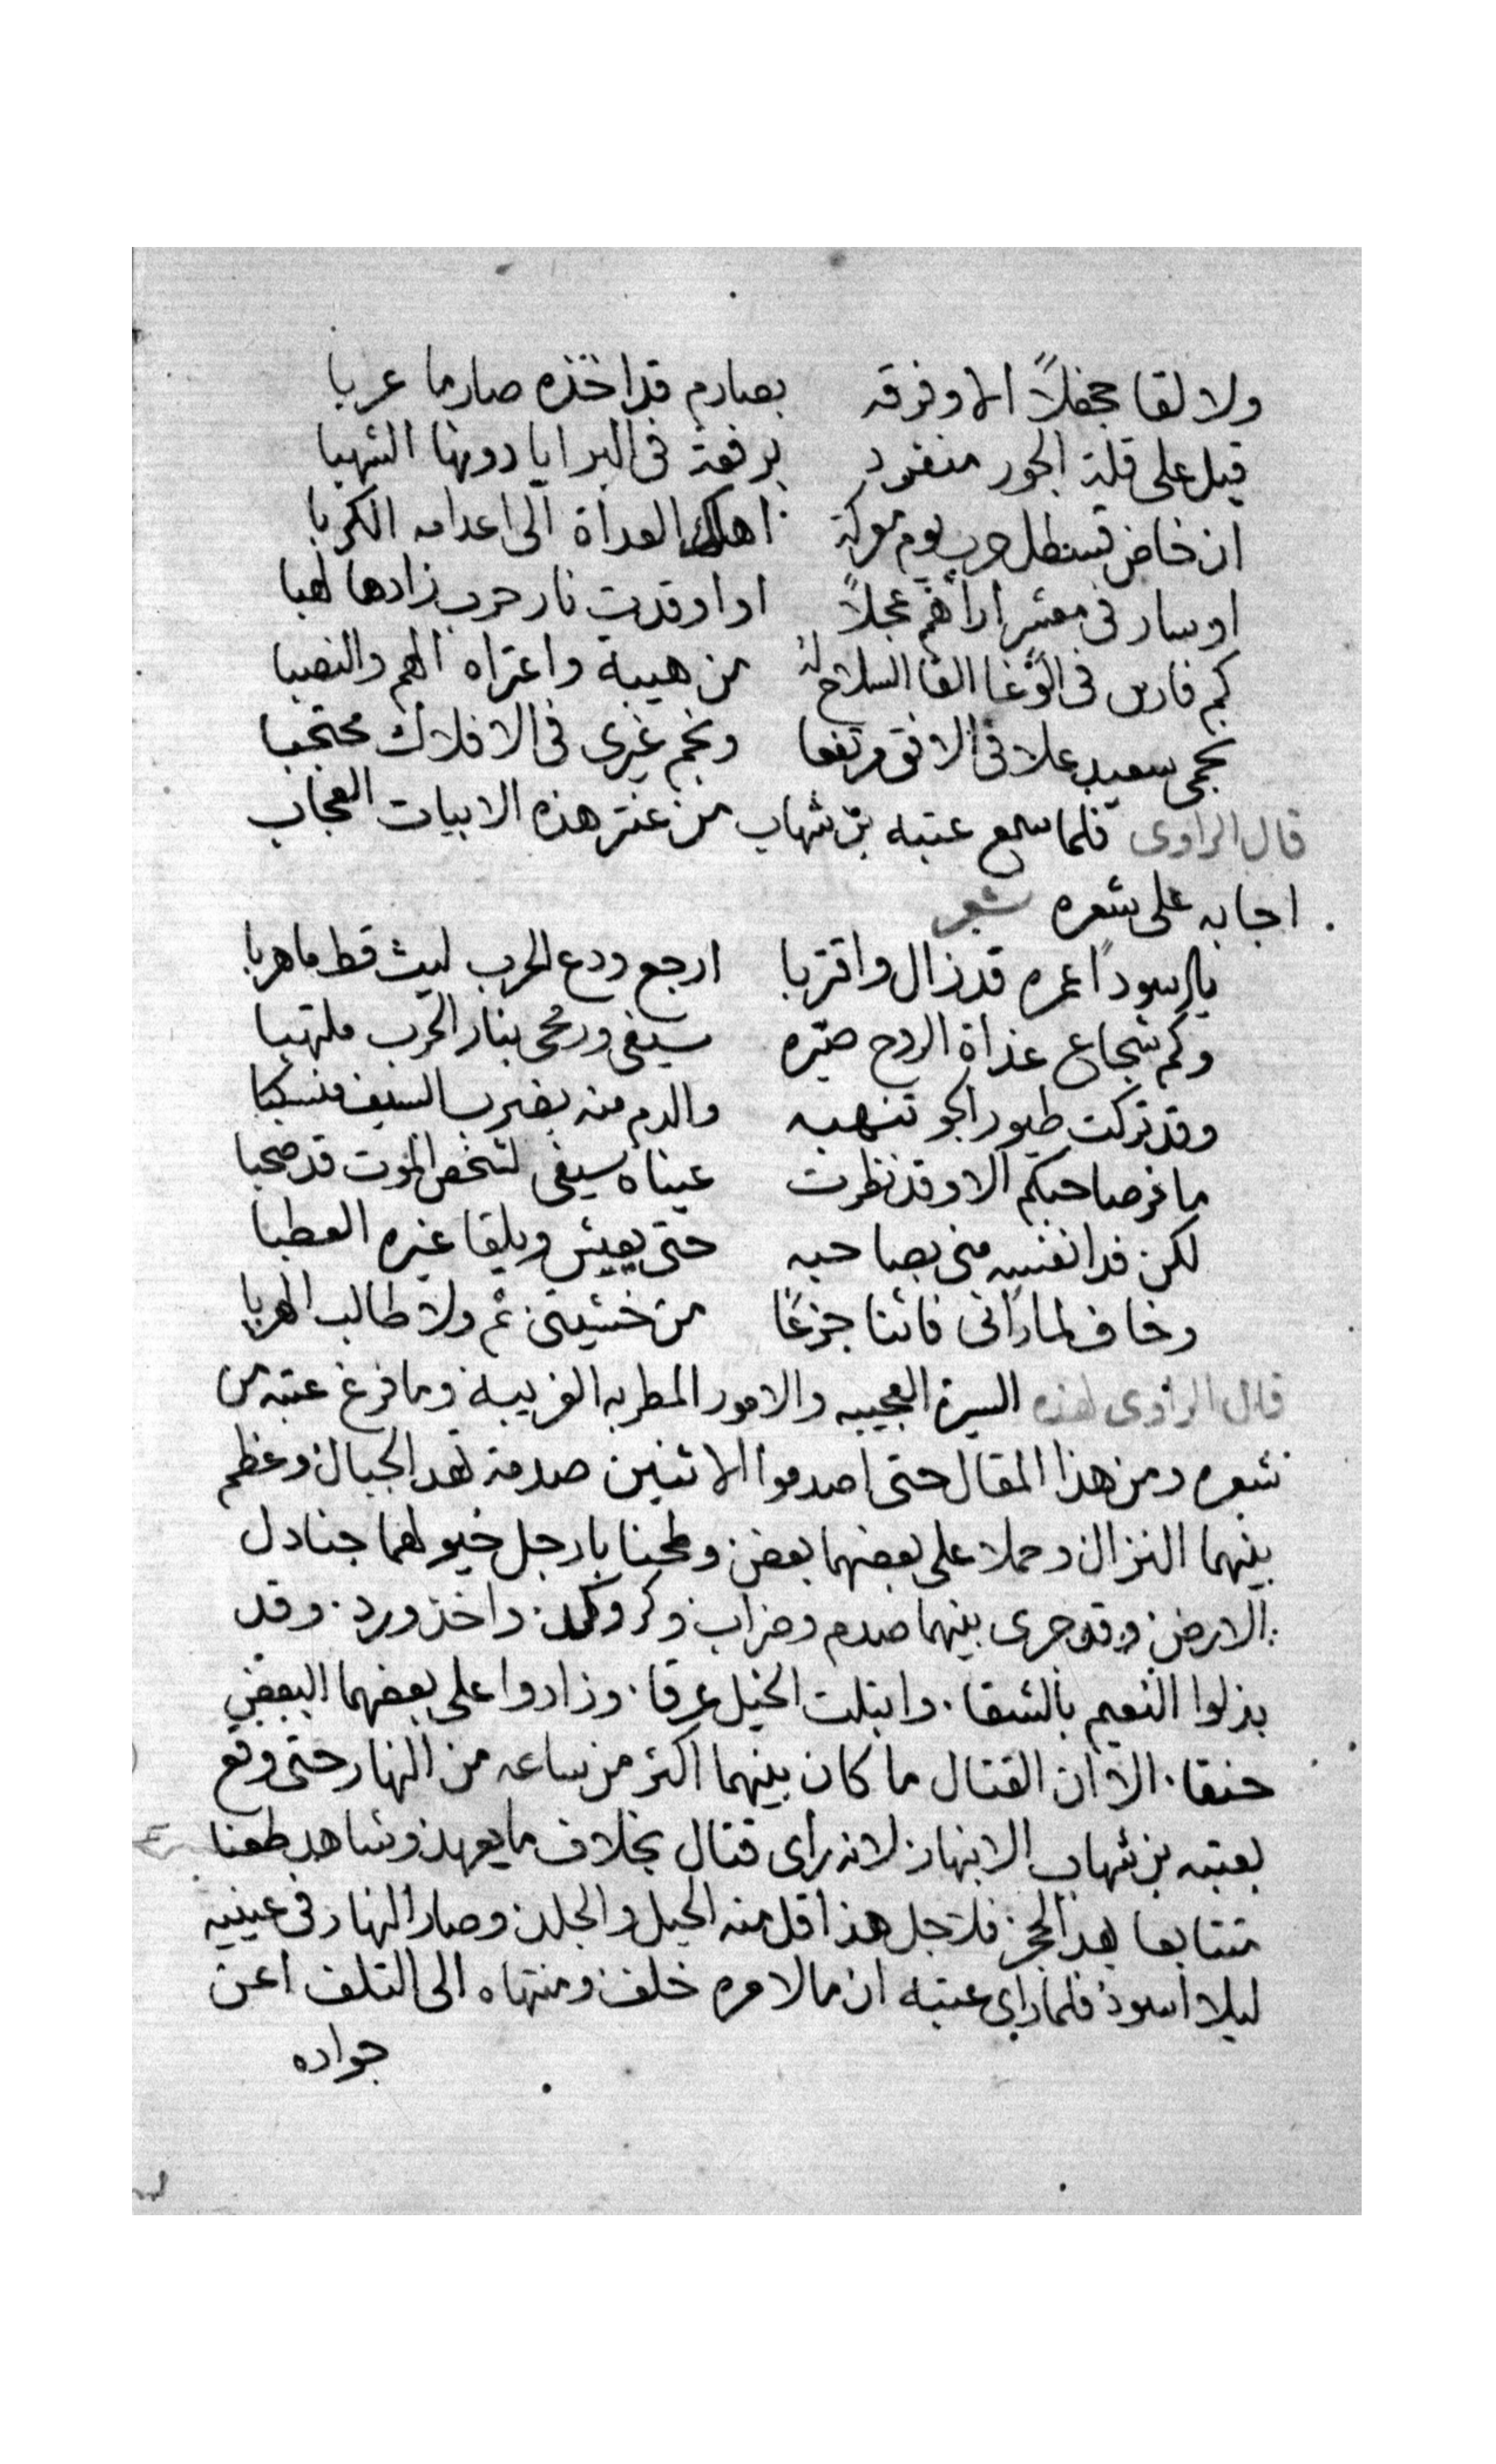 ولا لقا جحفلاً الا وفرقه بصارم قد اخذه صارما عربا
قيل على قلة الجور منفرد برفعة فى البرايا دونها الشهبا
ان خاض قسطل حرب يوم معركة اهلك العداة الى اعدامه الكربا
او سار فى معشر اراهم عجلاً او اوقدت نار حرب زادها لهبا
كم فارس فى الوغا القا السلاح له من هيبة واعتراه الهم والنصبا
نجمى سعيد علا فى الافق مرتفعا ونجم غيرى فى الافلاك محتجبا
قال الراوى فلما سمع عتبه بن شهاب من عنتر هذه الابيات العجاب
اجابه على شعره شعر
يا اسوداً عمره قد زال واقتربا ارجع ودع الحرب ليث قط ما هربا
وكم شجاع غداة الروع صيّره سيفى ورمحى بنار الحرب ملتهبا
وقد تركت طيور الجو تنهبه والدم منه بضرب السيف منسكبا
ما فر صاحبكم الا وقد نظرت عيناه سيفى لشخص الموت قد صحبا
لكن فدا نفسه منى بصاحبه حتى يعيش ويلقا غيره العطبا
وخاف لما رانى فانثنا جزعًا من خشيتى ثم ولا طالب الهربا
قال الراوى لهذه السيرة العجيبه والامور المطربه الغريبة وما فرغ عتبه من
شعره ومن هذا المقال حتى اصدموا الاثنين صدمة تهد الجبال وعظم
بينهما النزال وحملا على بعضهما بعض وطحنا بارجل خيولهما جنادل
الارض وقد جرى بينهما صدم وضراب وكر وكد واخذ ورد وقد
بذلوا النعيم بالشقا وابتلت الخيل عرقا وزادوا على بعضهما البعض
حنقا الا ان القتال ما كان بينهما اكثر من ساعه من النهار حتى وقع
بعتبه بن شهاب الانبهار لانه راى قتال بخلاف ما يعهد وشاهد طعنا
متتابعا يهد الحجر فلاجل هذا قل منه الحيل والجلد وصار النهار فى عينيه
ليلا اسود فلما راى عتبه ان ما لامره خلف ومنتهاه الى التلف اعن
جواده